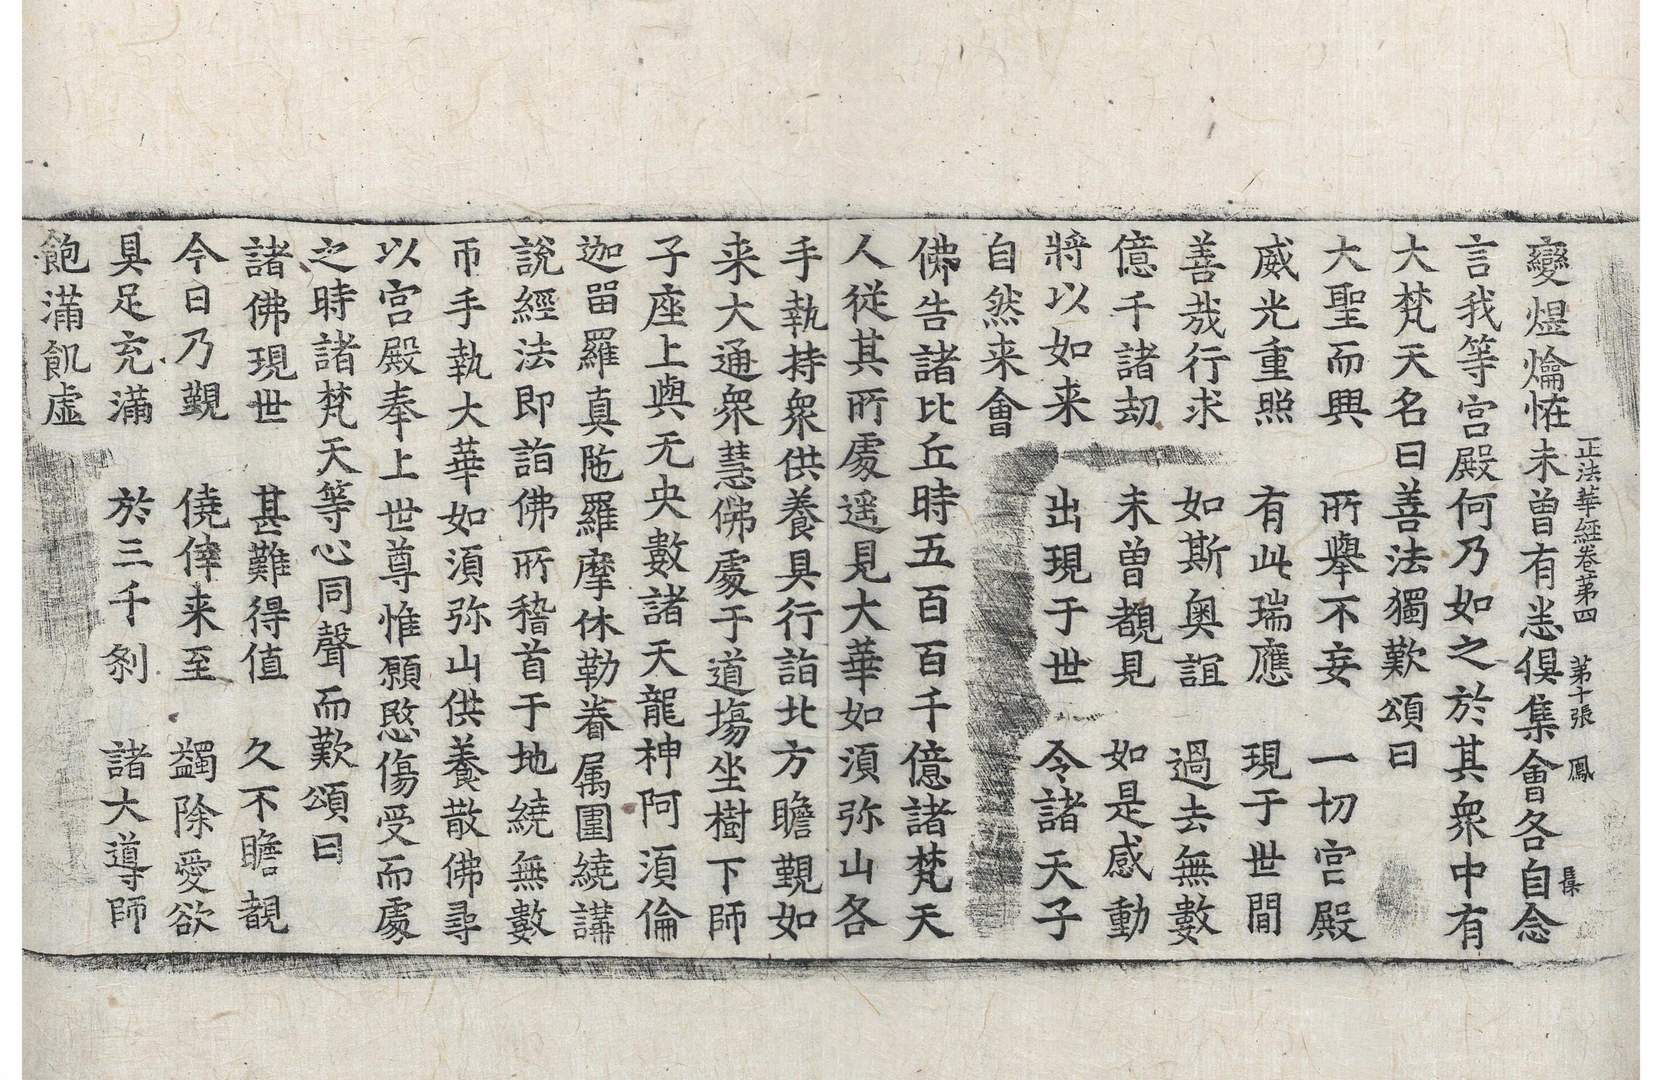 正法華經卷第四　第十張　鳳　集
變煜爚恠未曾有悉俱集會各自念
言我等宫殿何乃如之於其衆中有
大梵天名曰善法獨歎頌曰
大聖而興　所擧不妄　一切宫殿
威光重照　有此瑞應　現于世閒
善㢤行求　如斯奥誼　過去無數
億千諸劫　未曾覩見　如是感動
將以如来　出現于世　令諸天子
自然来會
佛告諸比丘時五百百千億諸梵天
人從其所處遥見大華如湏弥山各
手執持衆供養具行詣北方瞻覲如
来大通衆慧佛處于道塲坐樹下師
子座上與无央數諸天龍神阿湏倫
迦留羅真陁羅摩休勒眷属圍繞講
說經法即詣佛所稽首于地繞無數
帀手執大華如湏弥山供養散佛尋
以宫殿奉上世尊惟願愍傷受而處
之時諸梵天等心同聲而歎頌曰
諸佛現世　甚難得值　久不瞻覩
今日乃覲　僥倖来至　蠲除愛欲
具足充滿　於三千剎　諸大導師
飽滿飢虛